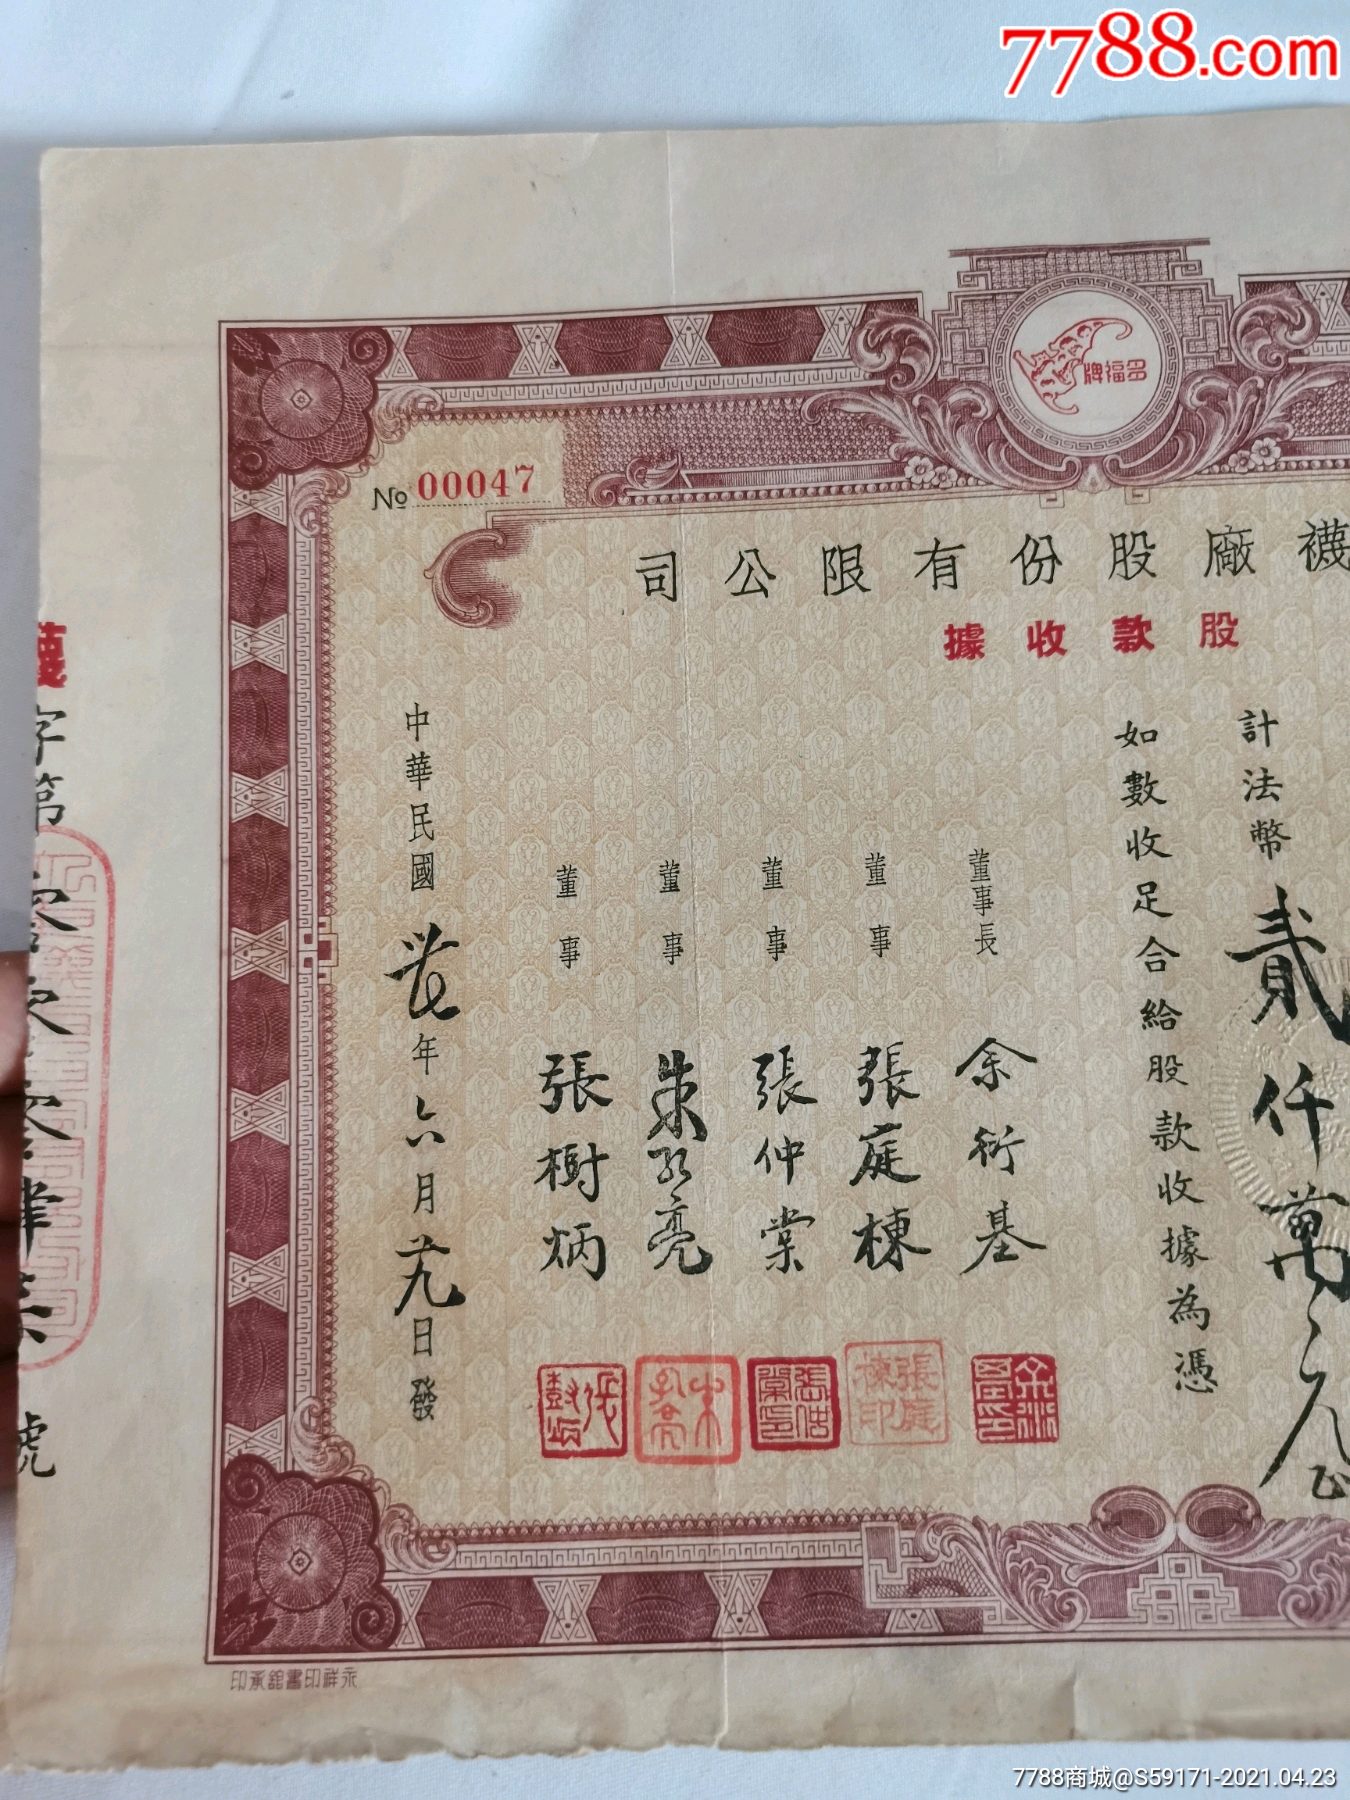 7788.com
多福牌
No 00047
襪廠股份有限公司
股款收據
計法幣貳仟萬元正
如數收足合給股款收據為憑
董事長 余衍基
董事 張庭棟
董事 張仲棠
董事 朱孔亮
董事 張樹炳
中華民國卅七年六月廿九日發
字第
號
永祥印書館承印
7788商城@S59171-2021.04.23